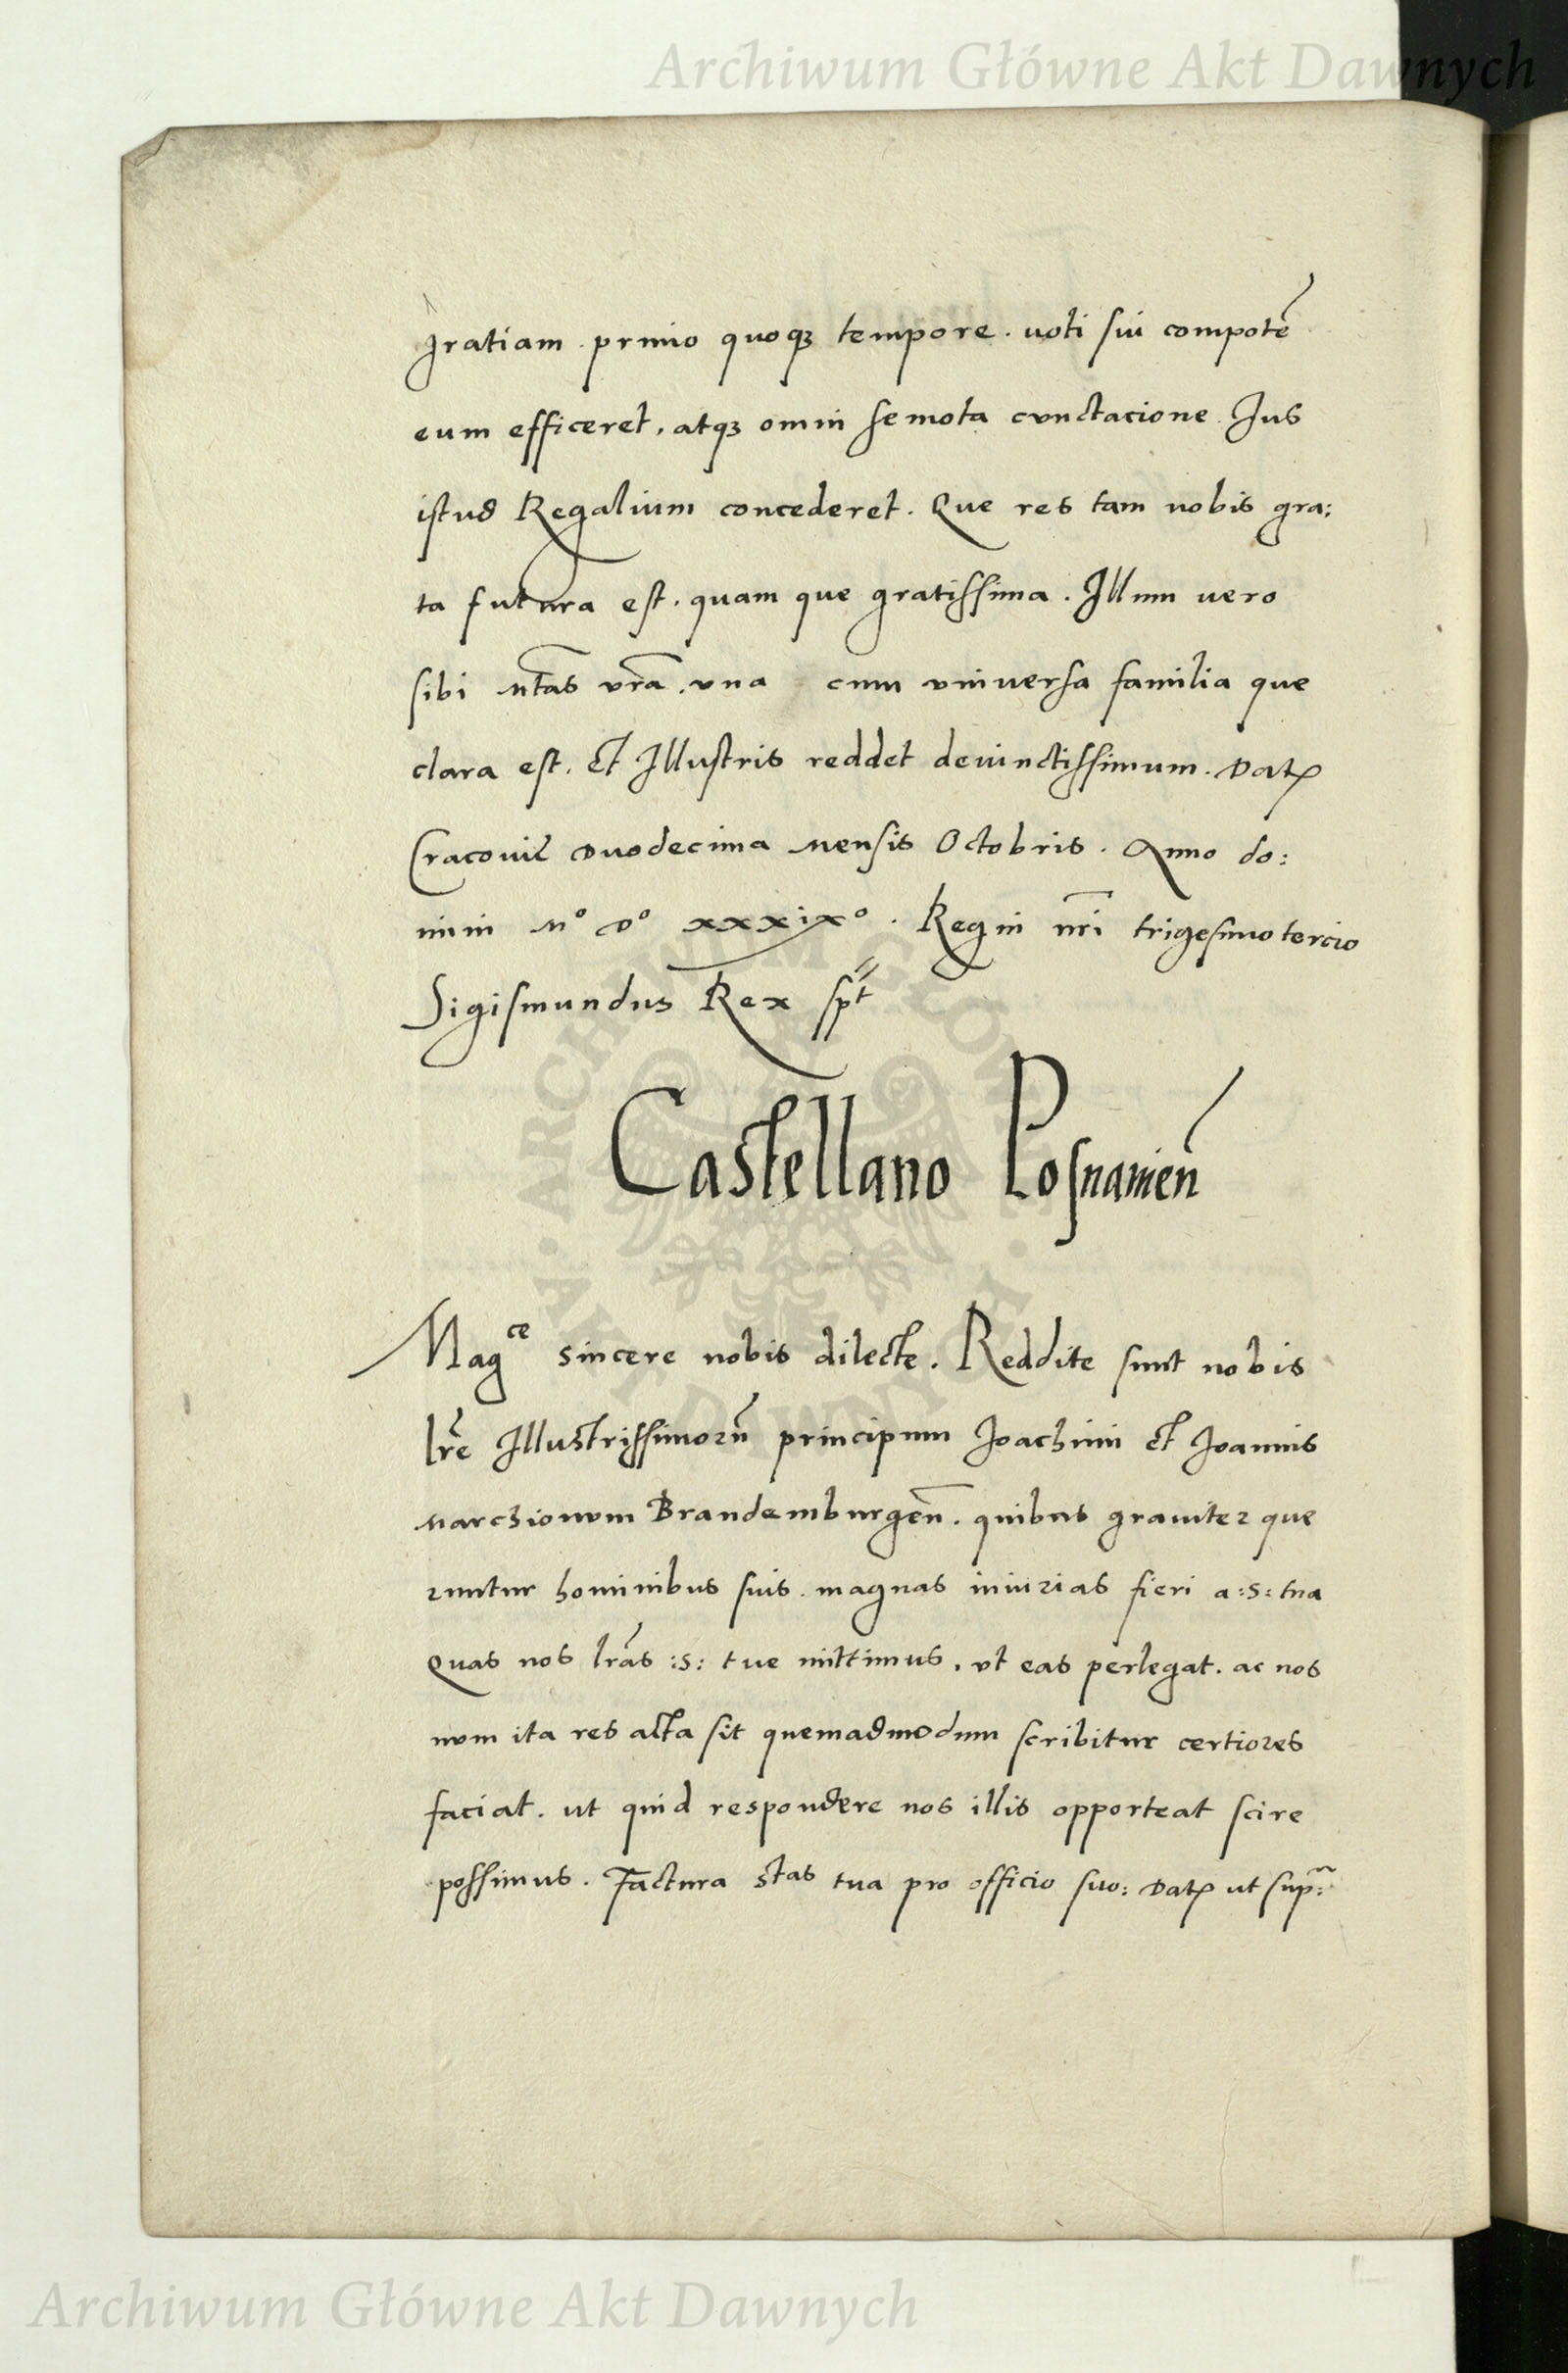 Archiwum Główne Akt Dawnych
gratiam primo quoqꝫ tempore. uoti sui compotē
eum efficeret, atqꝫ omni semota cunctacione Jus
istud Regalium concederet. Que res tam nobis gra:
ta futura est. quam que gratissima. Illum vero
sibi Mtas vrā. vna cum vniuersa familia que
clara est. et Illustris reddet deuinctissimum. Datꝝ
Cracovię Duodecima Mensis Octobris. Anno do:
mini Mo Do xxxixo. Regni nri trigesimo tercio
Sigismundus Rex spt
Castellano Posnanień
Magce sincere nobis dilecte. Reddite sunt nobis
lrē Illustrissimorū principum Joachimi et Joannis
Marchionum Brandemburgeñ. quibus grauiter que
runtur hominibus suis magnas iniurias fieri a:S: tua
Quas nos lrās :S: tue mittimus, vt eas perlegat. ac nos
num ita res acta sit quemadmodum scribitur certiores
faciat. ut quid respondere nos illis opporteat scire
possimus. Factura Stas tua pro officio suo: Datꝝ ut supra:
ARCHIWUM GŁÓWNE AKT DAWNYCH
Archiwum Główne Akt Dawnych